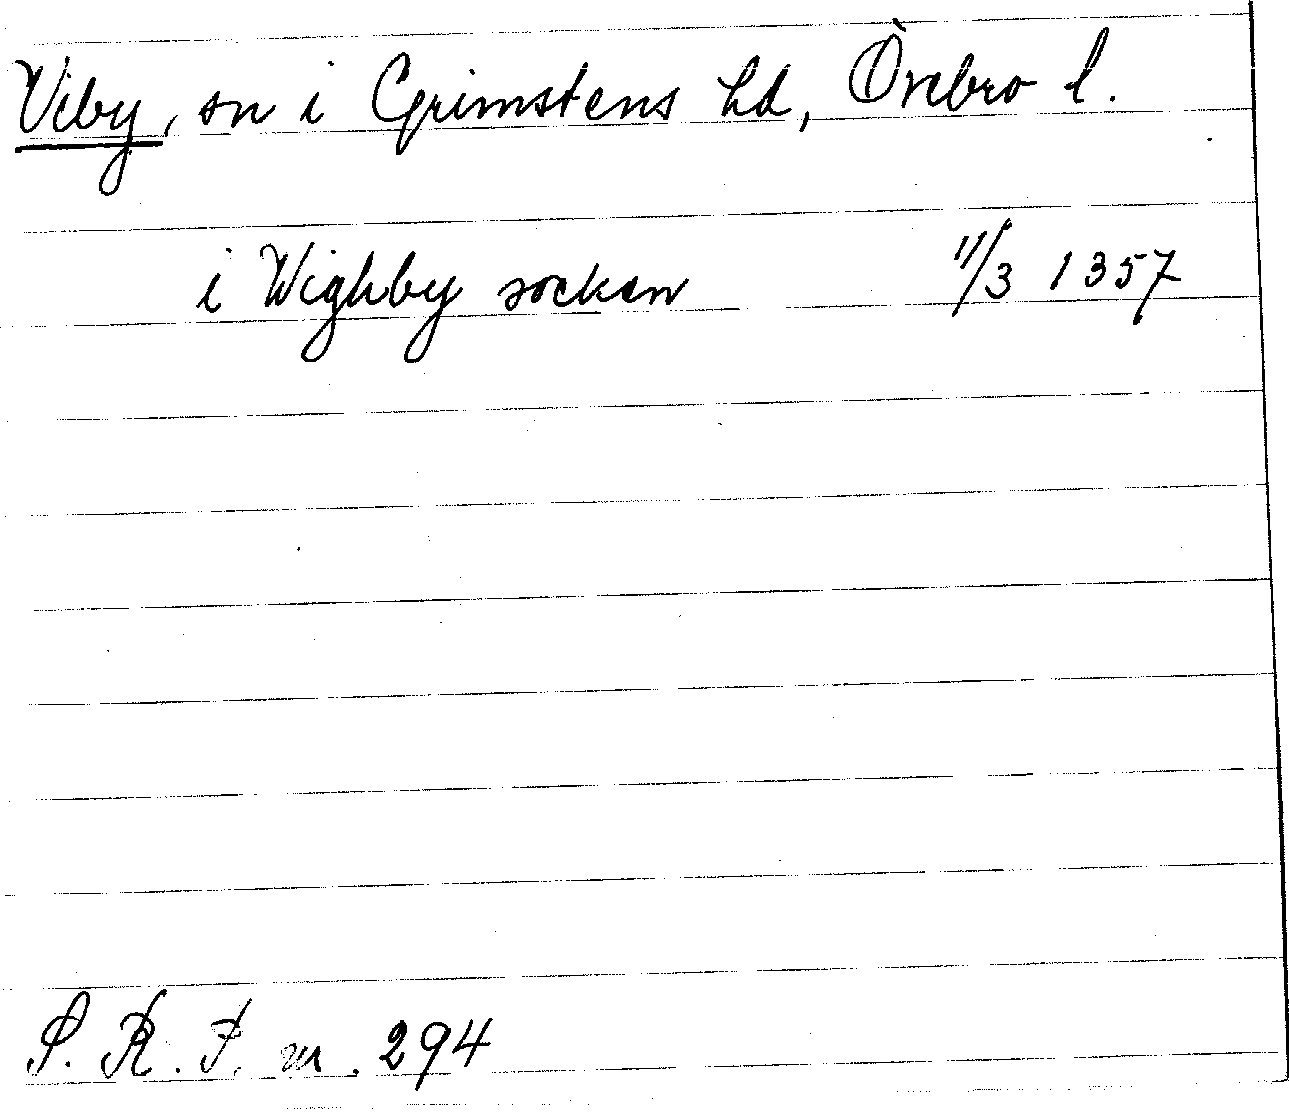 Viby, sn i Grimstens hd, Örebro l.
i Wighby socken 11/3 1357
S. R. P. nr. 294